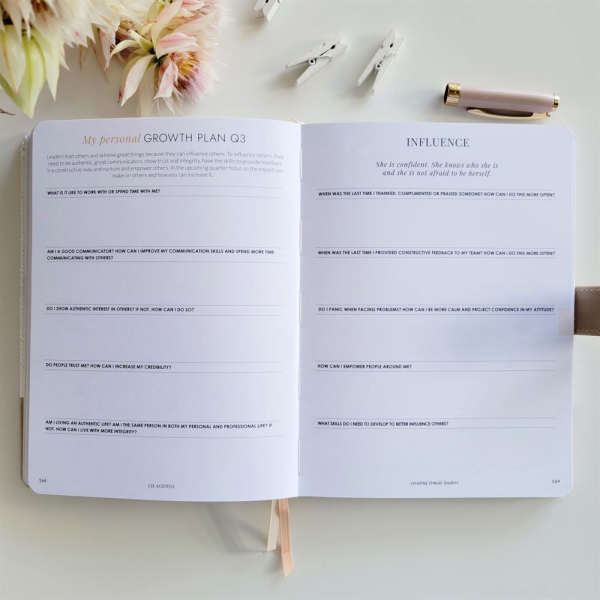 My personal GROWTH PLAN Q3
Leaders lead others and achieve great things because they can influence others. To influence others, they
need to be authentic, great communicators, show trust and integrity, have the skills to provide feedback
in a constructive way, and nurture and empower others. In the upcoming quarter focus on the impact you
make on others and how you can increase it.
WHAT IS IT LIKE TO WORK WITH OR SPEND TIME WITH ME?
AM I A GOOD COMMUNICATOR? HOW CAN I IMPROVE MY COMMUNICATION SKILLS AND SPEND MORE TIME
COMMUNICATING WITH OTHERS?
DO I SHOW AUTHENTIC INTEREST IN OTHERS? IF NOT, HOW CAN I DO SO?
DO PEOPLE TRUST ME? HOW CAN I INCREASE MY CREDIBILITY?
AM I LIVING AN AUTHENTIC LIFE? AM I THE SAME PERSON IN BOTH MY PERSONAL AND PROFESSIONAL LIFE? IF
NOT, HOW CAN I LIVE WITH MORE INTEGRITY?
168
LH AGENDA
INFLUENCE
She is confident. She knows who she is
and she is not afraid to be herself.
WHEN WAS THE LAST TIME I THANKED, COMPLIMENTED OR PRAISED SOMEONE? HOW CAN I DO THIS MORE OFTEN?
WHEN WAS THE LAST TIME I PROVIDED CONSTRUCTIVE FEEDBACK TO MY TEAM? HOW CAN I DO THIS MORE OFTEN?
DO I PANIC WHEN FACING PROBLEMS? HOW CAN I BE MORE CALM AND PROJECT CONFIDENCE IN MY ATTITUDE?
HOW CAN I EMPOWER PEOPLE AROUND ME?
WHAT SKILLS DO I NEED TO DEVELOP TO BETTER INFLUENCE OTHERS?
creating female leaders
169